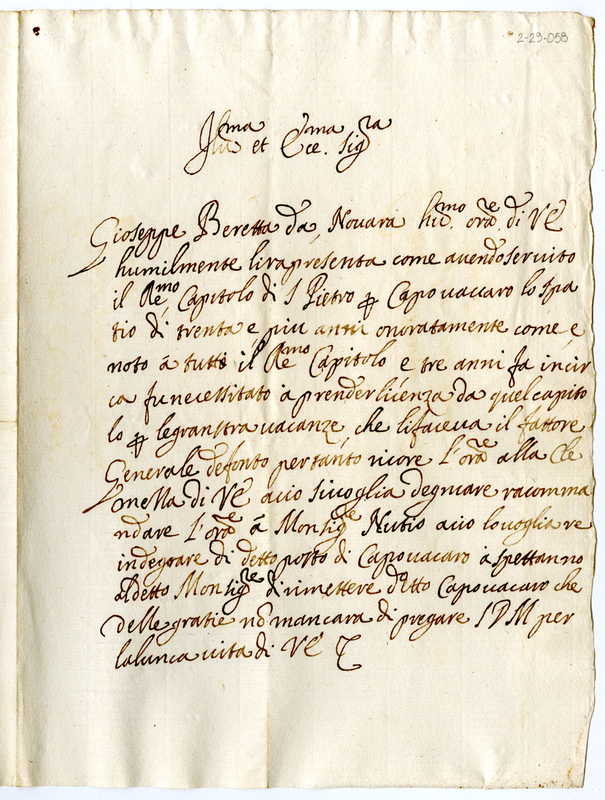 2-29-058
Ill.ma et Ecc.ma Sig.ra
Gioseppe Beretta da Novara hu.mo ora.re di V.E.
humilmente li rapresenta come avendo servito
il Re.mo Capitolo di S Pietro p Capovaccaro lo spa
tio di trenta e piu anni onoratamente come é
noto á tutti il Re.mo Capitolo e tre anni fa incir
ca fu necessitato á prender licenza da quel capito
lo p le granstravacanze che li faceva il fattore
Generale defonto per tanto ricore l'ora.re alla Cle
mensa di V.E. acio si voglia degniare racomma
ndare l'ora.re á Monsig.re Nutio acio lo voglia re
indegrare di detto posto di Capovacaro á spettanno
al detto Monsig.re di rimettere detto Capovacaro che
delle gratie nō mancara di pregare S D M per
la lunca vita di V.E.